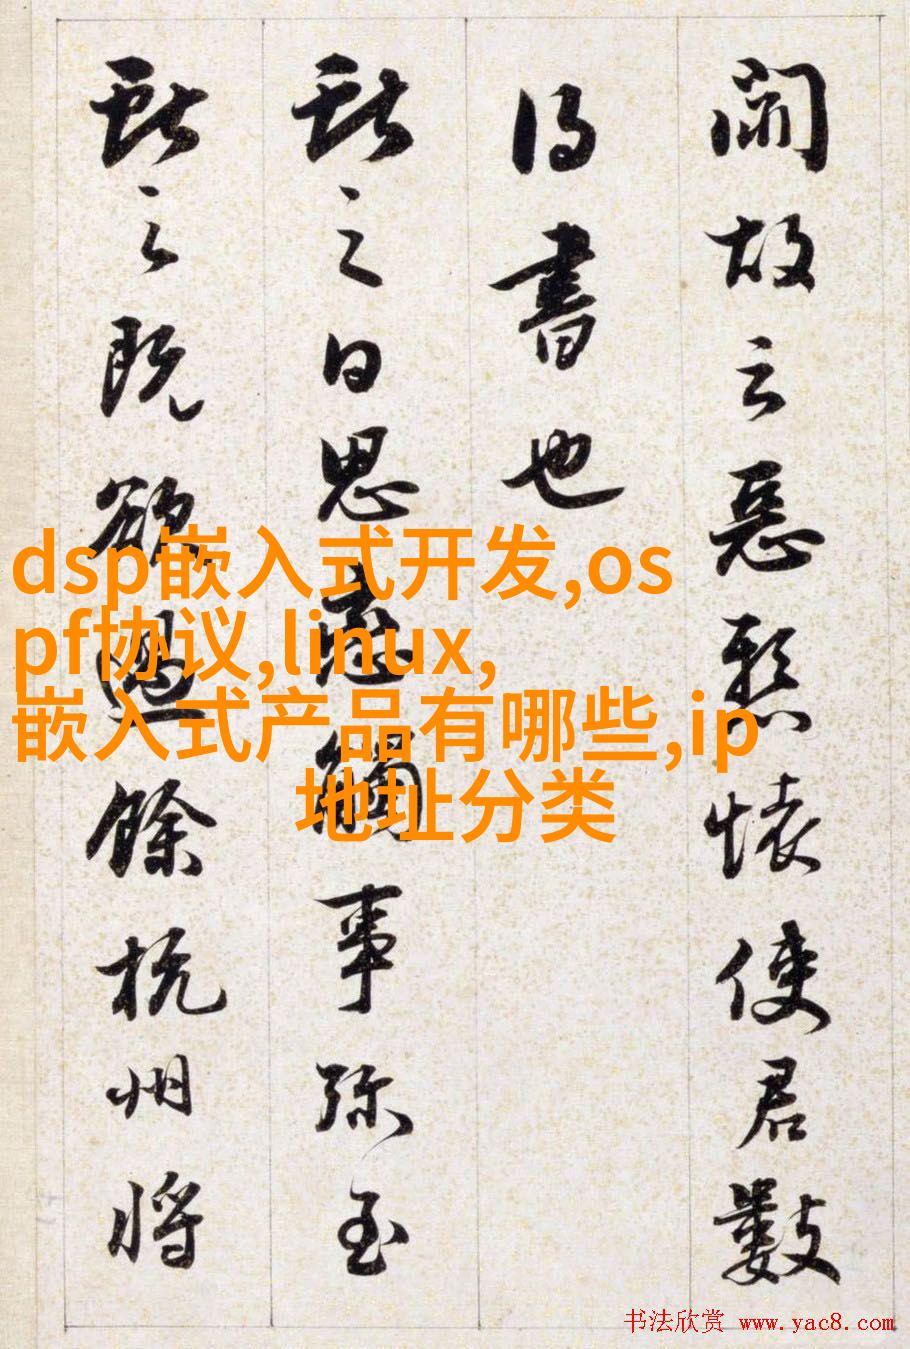 故云惡懷使君數
得書也
献之日思戀觸事弥至
献之既欲過餘杭州将
dsp嵌入式开发,os
pf协议,linux,
嵌入式产品有哪些,ip
地址分类
书法欣赏 www.yac8.com